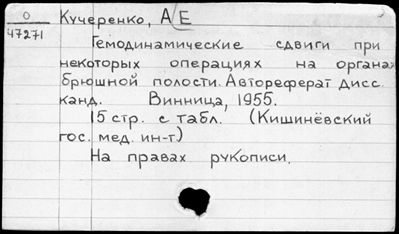 О
47271
Кучеренко, А Е
Гемодинамические сдвиги при
некоторых операциях на органах
брюшной полости. Автореферат дисс.
канд. Винница, 1955.
15 стр. с табл. (Кишинёвский
гос. мед. ин-т)
На правах рукописи.